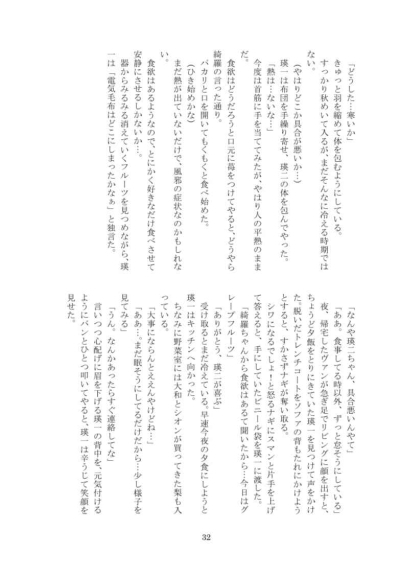 「どうした…寒いか」
きゅっと羽を縮めて体を包むようにしている。
すっかり秋めいて入るが、まだそんなに冷える時期では
ない。
（やはりどこか具合が悪いか…）
瑛一は布団を手繰り寄せ、瑛二の体を包んでやった。
「熱は…ないな…」
今度は首筋に手を当ててみたが、やはり人の平熱のまま
だ。
食欲はどうだろうと口元に苺をつけてやると、どうやら
綺羅の言った通り。
パカリと口を開いてもくもくと食べ始めた。
（ひき始めかな）
まだ熱が出ていないだけで、風邪の症状なのかもしれな
い。
食欲はあるようなので、とにかく好きなだけ食べさせて
安静にさせるしかないか…。
器からみるみる消えていくフルーツを見つめながら、瑛
一は「電気毛布はどこにしまったかなぁ」と独言た。
「なんや瑛二ちゃん、具合悪いんやて」
「ああ。食事してる時以外、ずっと怠そうにしている」
夜、帰宅したヴァンが急ぎ足でリビングに顔を出すと、
ちょうど夕飯をとりにきていた瑛一を見つけて声をかけ
た。脱いだトレンチコートをソファの背もたれにかけよう
とすると、すかさずナギが奪い取る。
シワになるでしょーと怒るナギにスマンと片手を上げ
て答えると、手にしていたビニール袋を瑛一に渡した。
「綺羅ちゃんから食欲はあるて聞いたから…今日はグ
レープフルーツ」
「ありがとう、瑛二が喜ぶ」
受け取るとまだ冷えている。早速今夜の夕食にしようと
瑛一はキッチンへ向かった。
ちなみに野菜室には大和とシオンが買ってきた梨も入
っている。
「大事にならんとええんやけどね…」
「ああ…。まだ眠そうにしてるだけだから…少し様子を
見てみる」
「うん。なんかあったらすぐ連絡してな」
言いつつ心配げに眉を下げる瑛一の背中を、元気付ける
ようにバンとひとつ叩いてやると、瑛一は辛うじて笑顔を
見せた。
32